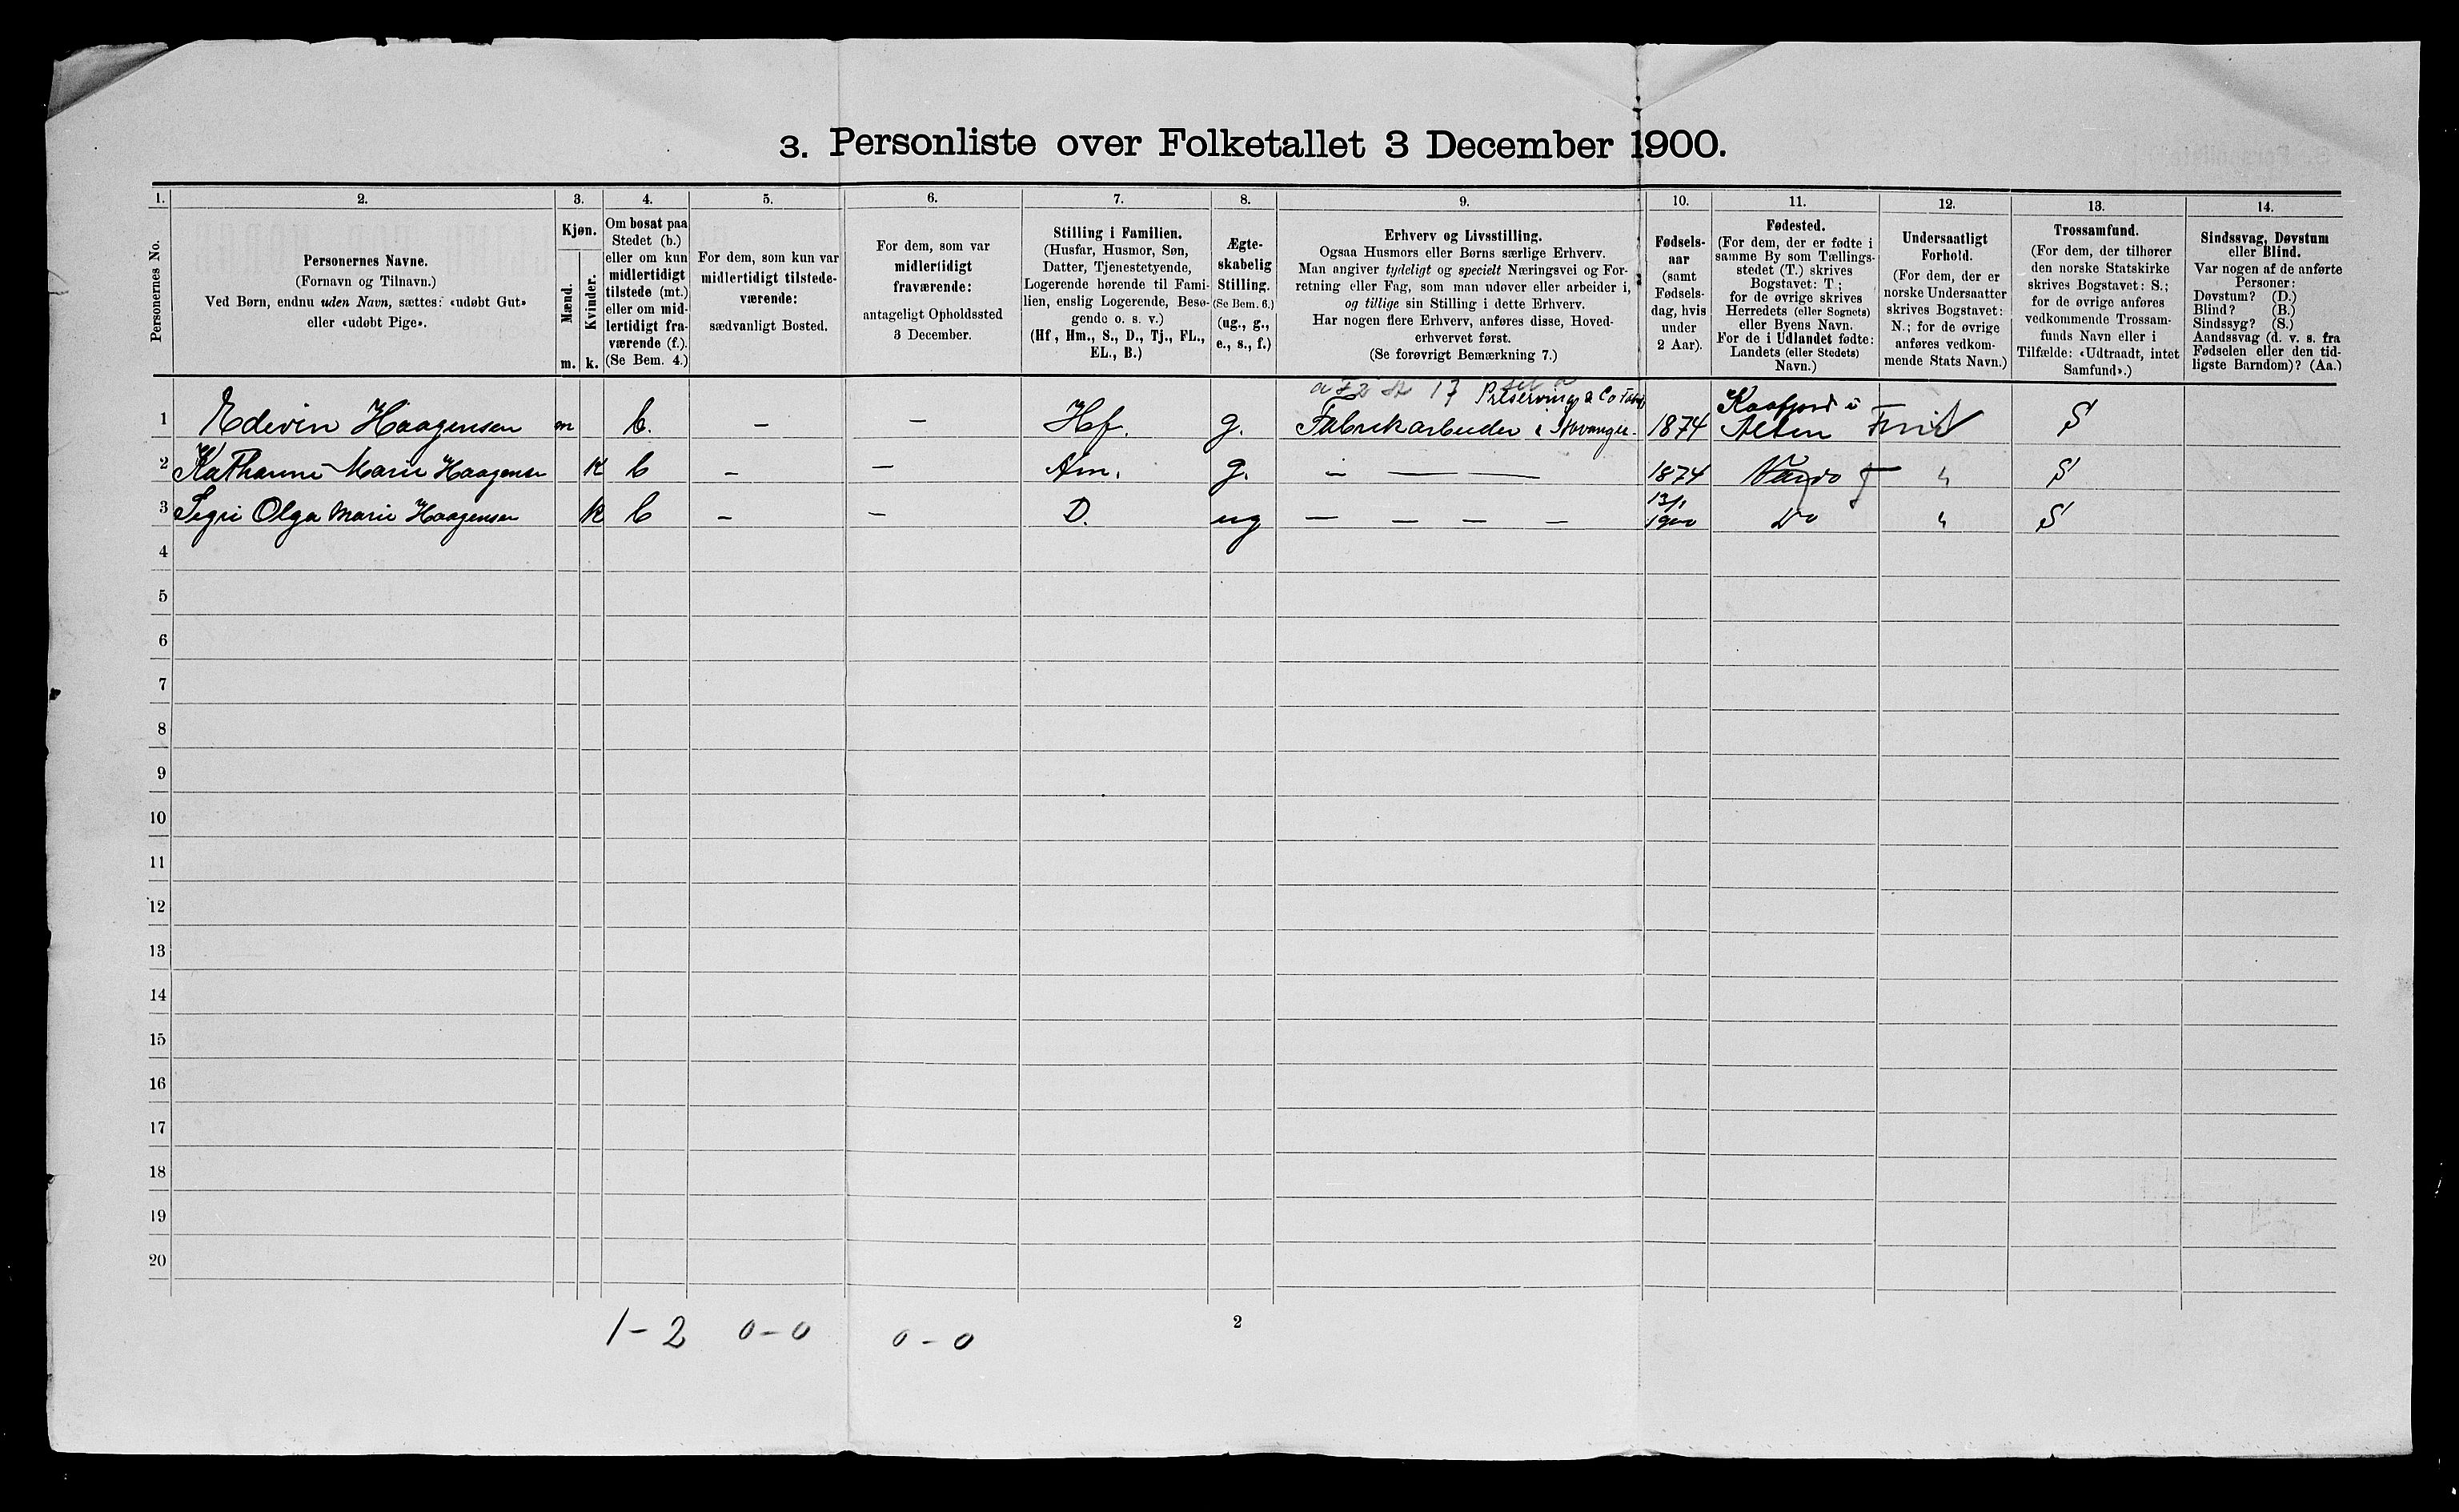 3. Personliste over Folketallet 3 December 1900.
1. 2. 3. 4. 5. 6. 7. 8. 9. 10. 11. 12. 13. 14.
Personernes No.
Personernes Navne.
(Fornavn og Tilnavn.)
Ved Børn, endnu uden Navn, sættes: «udøbt Gut»
eller «udøbt Pige».
Kjøn.
Mænd.
Kvinder.
m. k.
Om bosat paa
Stedet (b.)
eller om kun
midlertidigt
tilstede (mt.)
eller om mid-
lertidigt fra-
værende (f.).
(Se Bem. 4.)
For dem, som kun var
midlertidigt tilstede-
værende:
sædvanligt Bosted.
For dem, som var
midlertidigt
fraværende:
antageligt Opholdssted
3 December.
Stilling i Familien.
(Husfar, Husmor, Søn,
Datter, Tjenestetyende,
Logerende hørende til Fami-
lien, enslig Logerende, Besø-
gende o. s. v.)
(Hf, Hm., S., D., Tj., FL.,
EL., B.)
Ægte-
skabelig
Stilling.
(Se Bem. 6.)
(ug., g.,
e., s., f.)
Erhverv og Livsstilling.
Ogsaa Husmors eller Børns særlige Erhverv.
Man angiver tydeligt og specielt Næringsvei og For-
retning eller Fag, som man udøver eller arbeider i,
og tillige sin Stilling i dette Erhverv.
Har nogen flere Erhverv, anføres disse, Hoved-
erhvervet først.
(Se forøvrigt Bemærkning 7.)
Fødsels-
aar
(samt
Fødsels-
dag, hvis
under
2 Aar).
Fødested.
(For dem, der er fødte i
samme By som Tællings-
stedet (T.) skrives
Bogstavet: T;
for de øvrige skrives
Herredets (eller Sognets)
eller Byens Navn.
For de i Udlandet fødte:
Landets (eller Stedets)
Navn.)
Undersaatligt
Forhold.
(For dem, der er
norske Undersaatter
skrives Bogstavet:
N.; for de øvrige
anføres vedkom-
mende Stats Navn.)
Trossamfund.
(For dem, der tilhører
den norske Statskirke
skrives Bogstavet: S.;
for de øvrige anføres
vedkommende Trossam-
funds Navn eller i
Tilfælde: «Udtraadt, intet
Samfund».)
Sindssvag, Døvstum
eller Blind.
Var nogen af de anførte
Personer:
Døvstum? (D.)
Blind? (B.)
Sindssyg? (S.)
Aandssvag (d. v. s. fra
Fødselen eller den tid-
ligste Barndom)? (Aa.)
Preserving & Co
Kaafjord i
1 Edevin Haagensen m b. – – Hf. g. Fabrikarbeider i Stavanger. 1874 Alten N S
2 Kathanne Marie Haagensen k b – – Hm. g. – — — 1874 Vardø " S
13/1
3 Segri Olga Marie Haagensen k b – – D. ug – – – – 1900 Do " S
4
5
6
7
8
9
10
11
12
13
14
15
16
17
18
19
20
1 - 2 0 - 0 0 - 0
2